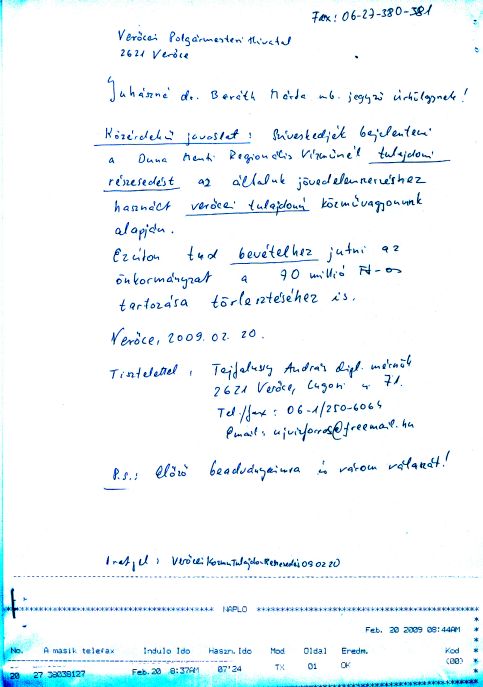 Fax: 06-27-380-381
Verőcei Polgármesteri Hivatal
2621 Verőce
Juhászné dr. Baráth Márta mb. jegyző úrhölgynek!
Közérdekű javaslat: Szíveskedjék bejelenteni
a Duna Menti Regionális Vízműnél tulajdoni
részesedést az általuk jövedelemszerzéshez
használt verőcei tulajdonú közművagyonunk
alapján.
Ezúton tud bevételhez jutni az
önkormányzat a 90 millió Ft-os
tartozása törlesztéséhez is.
Verőce, 2009.02.20.
Tisztelettel: Tejfalussy András dipl. mérnök
2621 Verőce, Lugosi u 71.
Tel/fax: 06-1/250-6064
Email: ujvizforras@freemail.hu
P.s.: Előző beadványaimra is várom válaszát!
Irat jel: VerőceiKozmuTulajdonReszesedes090220
NAPLO
Feb. 20 2009 08:44AM
No. A masik telefax Indulo Ido Haszn. Ido Mod Oldal Eredm. Kod
20 27 38038127 Feb.20 8:37AM 07'24 TX 01 OK (00)